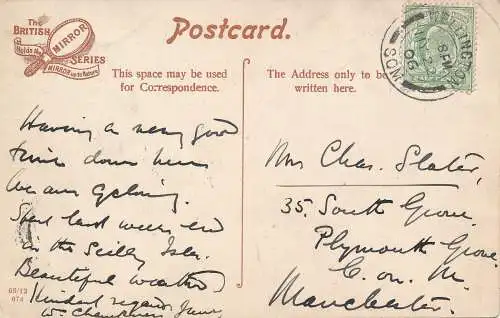 The
BRITISH
Holds the
MIRROR
MIRROR up to Nature
SERIES
Postcard.
This space may be used
for Correspondence.
The Address only to be
written here.
8 PM
06
Having a very good
time down here
We are
Spent last week end
in the Scilly Isles.
Beautiful weather
Kindest regards
68/13
674
Mrs Chas. Slater,
35. South Grove,
Plymouth Grove
C. on. M.
Manchester.